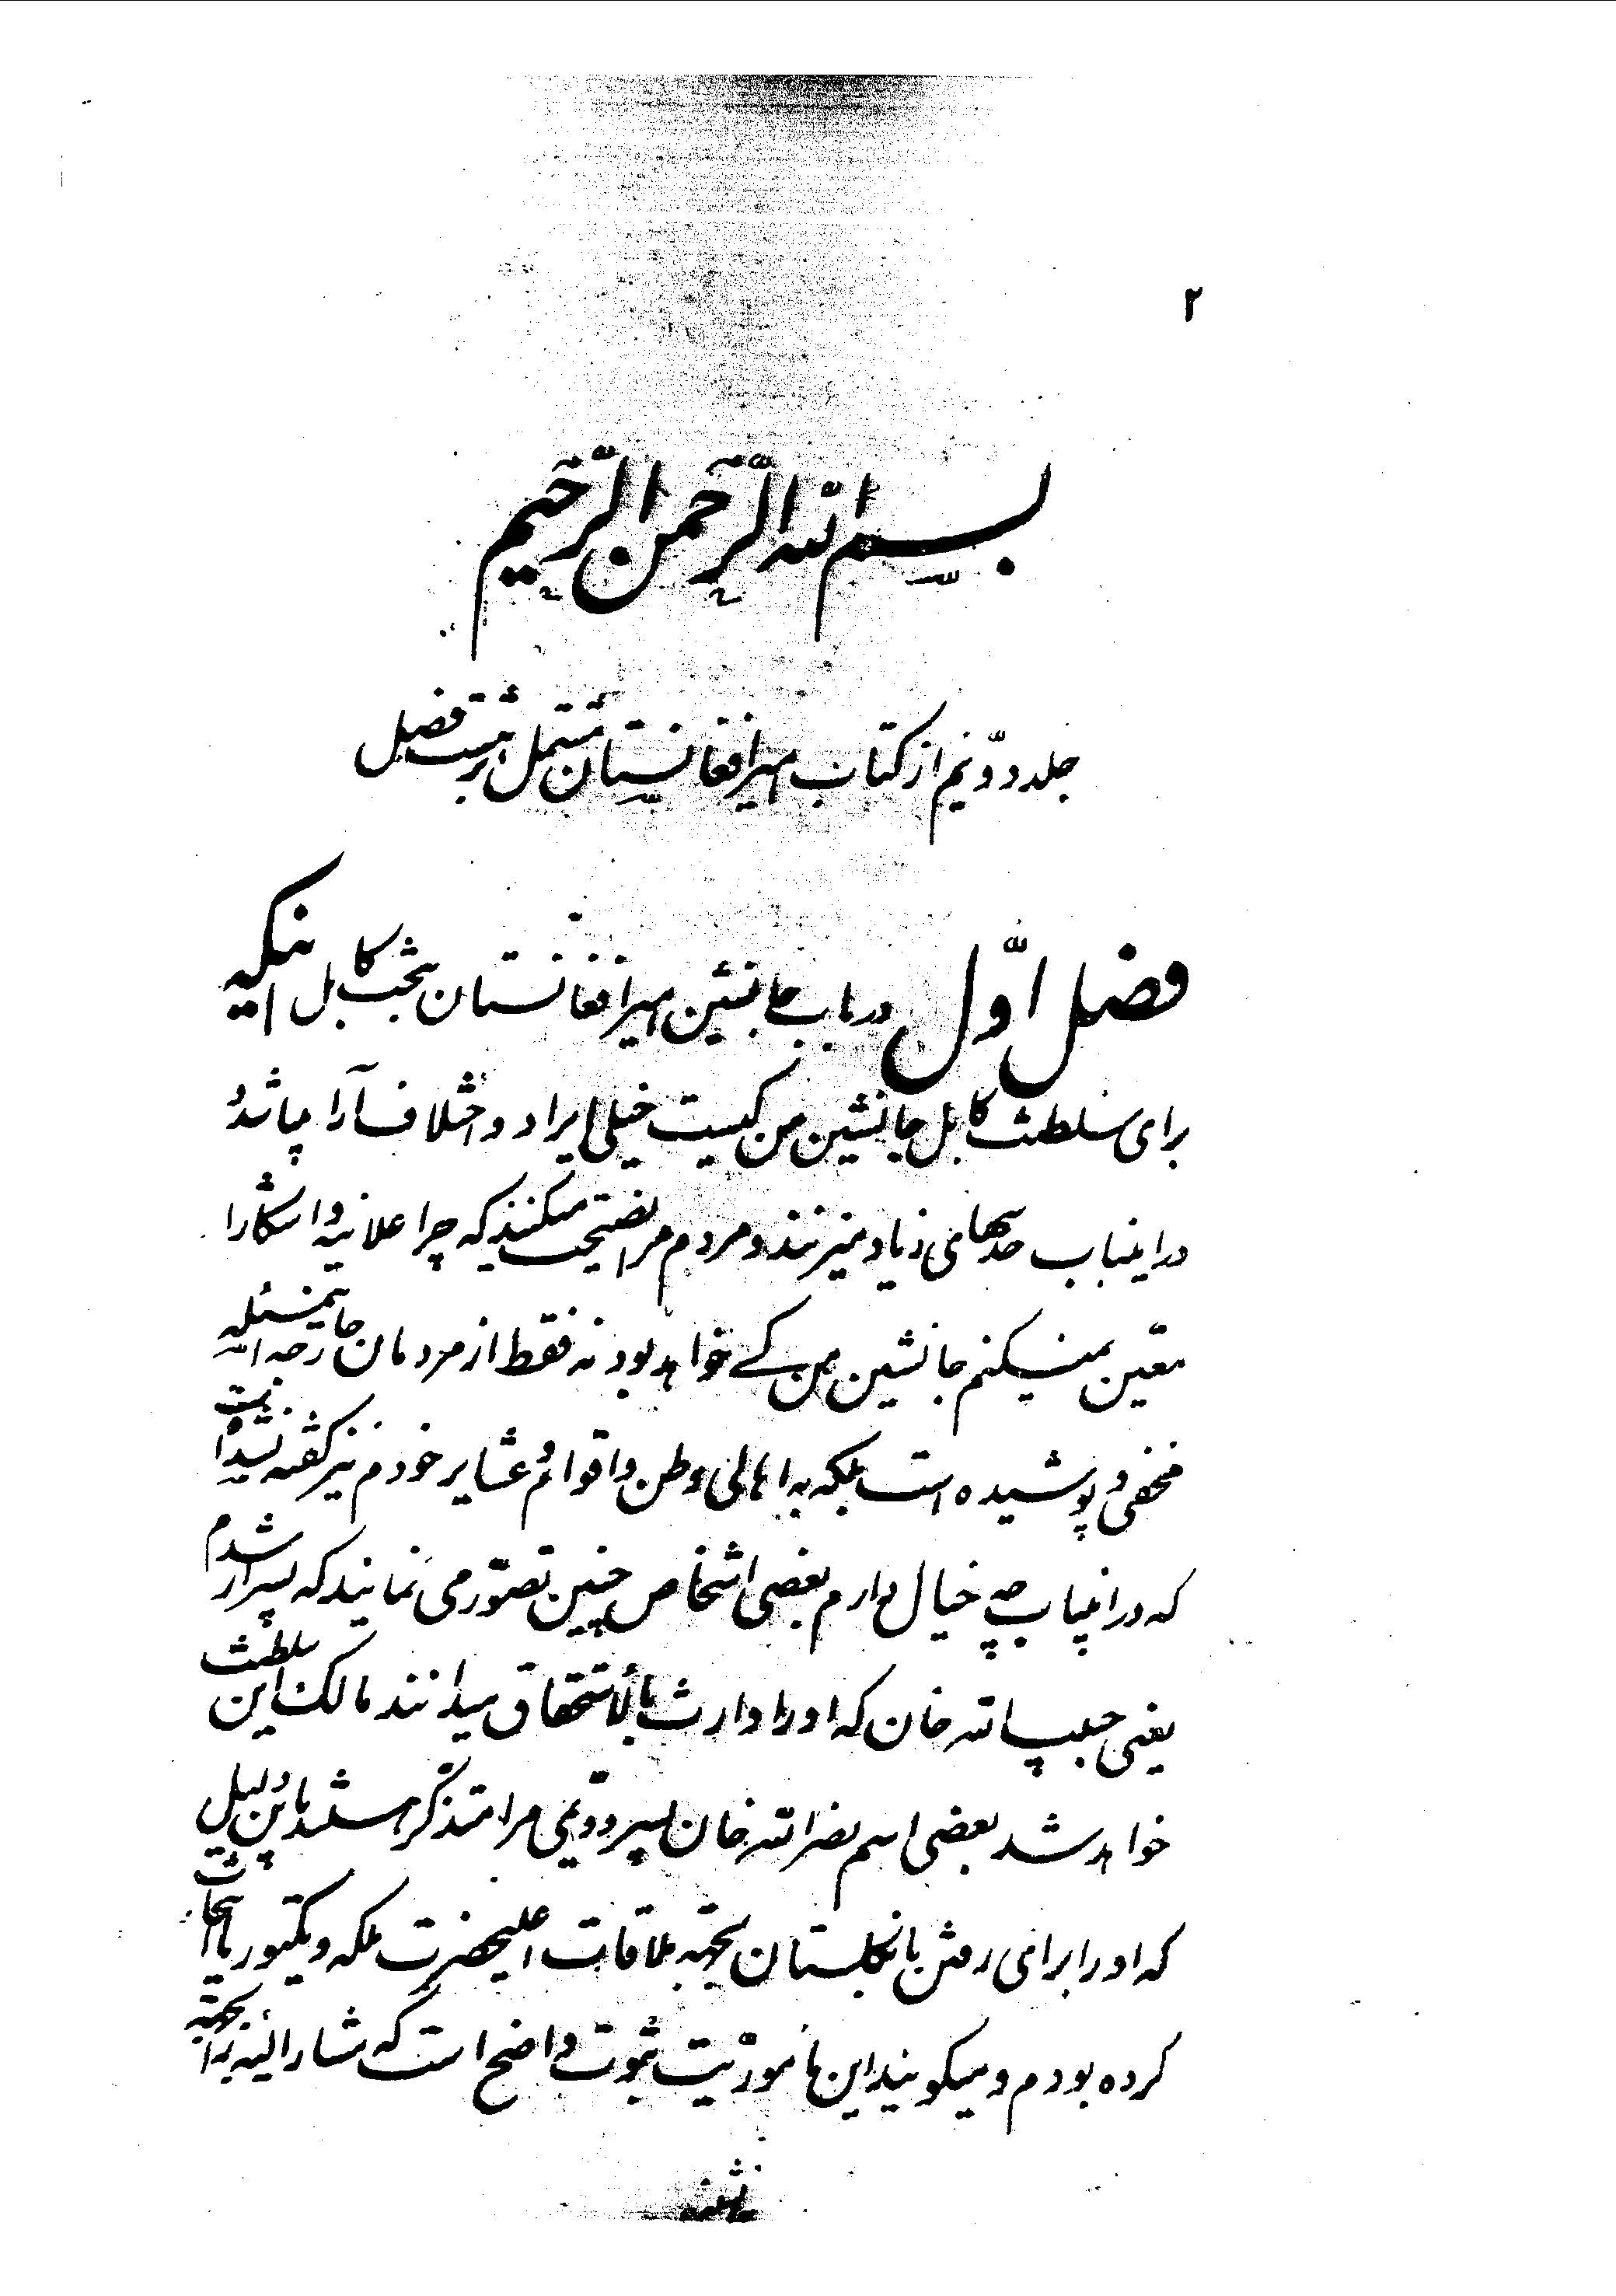 ۲
بسم الله الرحمن الرحیم
جلد دوّیم از کتاب امیر افغانستان مشتمل بر هشت فصل
فصل اوّل در باب جانشین امیر افغانستان بتخت کابل اینکه
برای سلطنت کابل جانشین من کیست خیلی ایراد و اختلاف آرا میباشد و
در اینباب حدسهای زیاد میزنند و مردم مرا نصیحت میکنند که چرا علانیه و اشکارا
معین نمیکنم جانشین من کے خواهد بود نه فقط از مردمان خارجه این مسئله
مخفی و پوشیده است بلکه به اهالی وطن و اقوام و عشایر خودم نیز گفته نشده است
که در اینباب چه خیال دارم بعضی اشخاص چنین تصوّر می نمایند که پسر ارشدم
یعنی حبیب الله خان که او را وارث بالاستحقاق میدانند مالک این سلطنت
خواهد شد بعضی اسم نصر الله خان پسر دویمی مرا متذکر هستند باین دلیل
که او را برای رفتن بانگلستان بجهته ملاقات اعلیحضرت ملکه ویکتوریا انتخاب
کرده بودم و میگویند این مأموریّت ثبوت واضح است که مشار الیه را بجهته